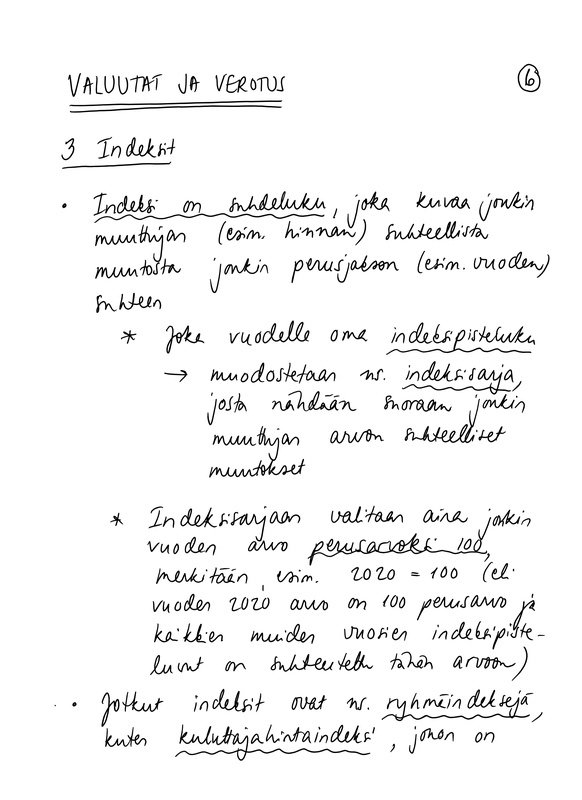 VALUUTAT JA VEROTUS
6
3 Indeksit
• Indeksi on suhdeluku, joka kuvaa jonkin
muuttujan (esim. hinnan) suhteellista
muutosta jonkin perusjakson (esim. vuoden)
suhteen
* Joka vuodelle oma indeksipisteluku
→ muodostetaan ns. indeksisarja,
josta nähdään suoraan jonkin
muuttujan arvon suhteelliset
muutokset
* Indeksisarjaan valitaan aina jonkin
vuoden arvo perusarvoksi 100,
merkitään, esim. 2020 = 100 (eli
vuoden 2020 arvo on 100 perusarvo ja
kaikkien muiden vuosien indeksipiste-
luvut on suhteutettu tähän arvoon)
• Jotkut indeksit ovat ns. ryhmäindeksejä,
kuten kuluttajahintaindeksi, johon on